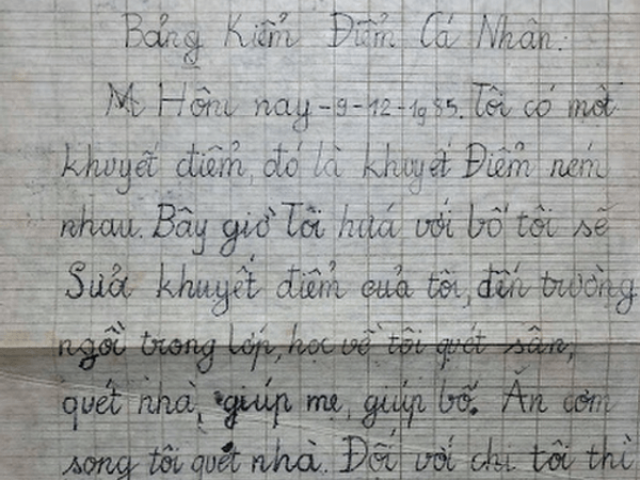 Bảng Kiểm Điểm Cá Nhân:
Hôm nay-9-12-1985. Tôi có một
khuyết điểm, đó là khuyết Điểm ném
nhau. Bây giờ Tôi hứa với bố tôi sẽ
Sửa khuyết điểm của tôi, đến trường
ngồi trong lớp, học về tôi quét sân,
quét nhà, giúp mẹ, giúp bố. Ăn cơm
song tôi quét nhà. Đối với chị tôi thì